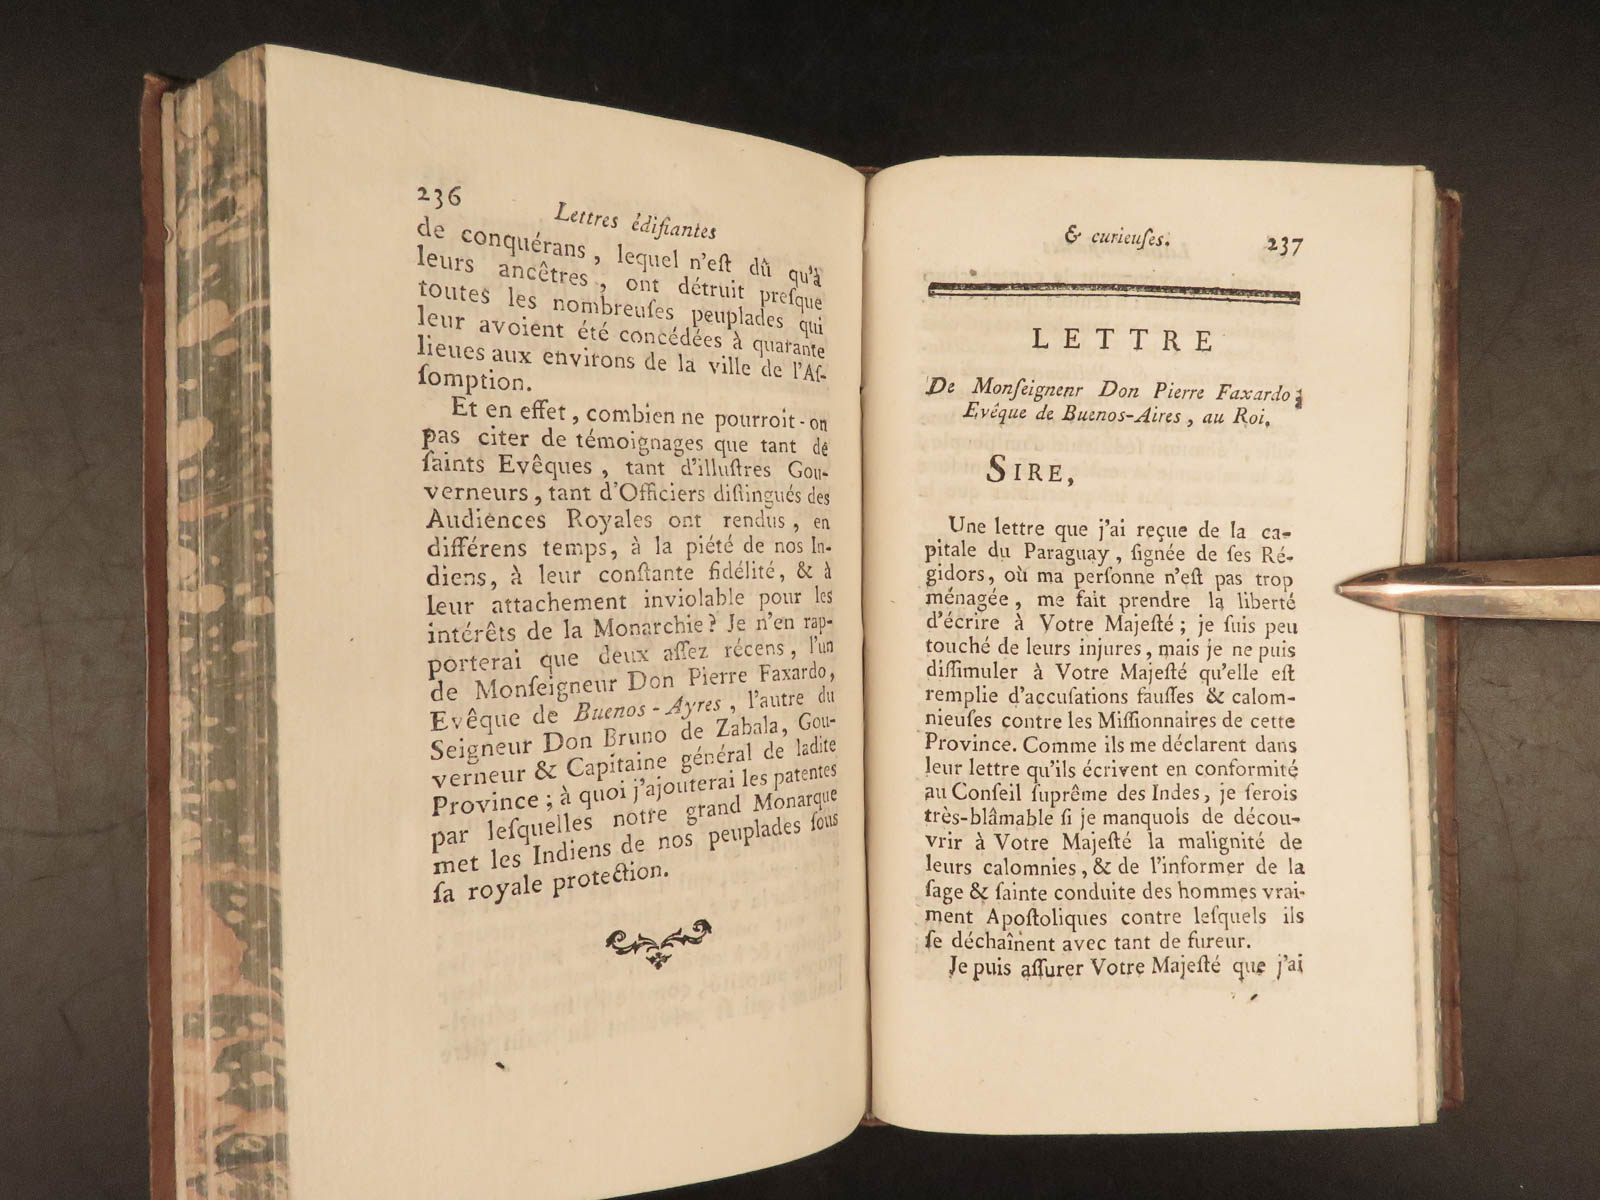 236
Lettres édifiantes
de conquérans, lequel n'eſt dû qu'à
leurs ancêtres, ont détruit preſque
toutes les nombreuſes peuplades qui
leur avoient été concédées à quarante
lieues aux environs de la ville de l'Aſ-
ſomption.
Et en effet, combien ne pourroit-on
pas citer de témoignages que tant de
ſaints Evêques, tant d'illuſtres Gou-
verneurs, tant d'Officiers diſtingués des
Audiences Royales ont rendus, en
différens temps, à la piété de nos In-
diens, à leur conſtante fidélité, & à
leur attachement inviolable pour les
intérêts de la Monarchie? Je n'en rap-
porterai que deux aſſez récens, l'un
de Monſeigneur Don Pierre Faxardo,
Evêque de Buenos-Ayres, l'autre du
Seigneur Don Bruno de Zabala, Gou-
verneur & Capitaine général de ladite
Province; à quoi j'ajouterai les patentes
par leſquelles notre grand Monarque
met les Indiens de nos peuplades ſous
ſa royale protection.
& curieuſes.
237
LETTRE
De Monſeignenr Don Pierre Faxardo;
Evêque de Buenos-Aires, au Roi.
SIRE,
Une lettre que j'ai reçue de la ca-
pitale du Paraguay, ſignée de ſes Ré-
gidors, où ma perſonne n'eſt pas trop
ménagée, me fait prendre la liberté
d'écrire à Votre Majeſté; je ſuis peu
touché de leurs injures, mais je ne puis
diſſimuler à Votre Majeſté qu'elle eſt
remplie d'accuſations fauſſes & calom-
nieuſes contre les Miſſionnaires de cette
Province. Comme ils me déclarent dans
leur lettre qu'ils écrivent en conformité
au Conſeil ſuprême des Indes, je ſerois
très-blâmable ſi je manquois de décou-
vrir à Votre Majeſté la malignité de
leurs calomnies, & de l'informer de la
ſage & ſainte conduite des hommes vrai-
ment Apoſtoliques contre leſquels ils
ſe déchaînent avec tant de fureur.
Je puis aſſurer Votre Majeſté que j'ai